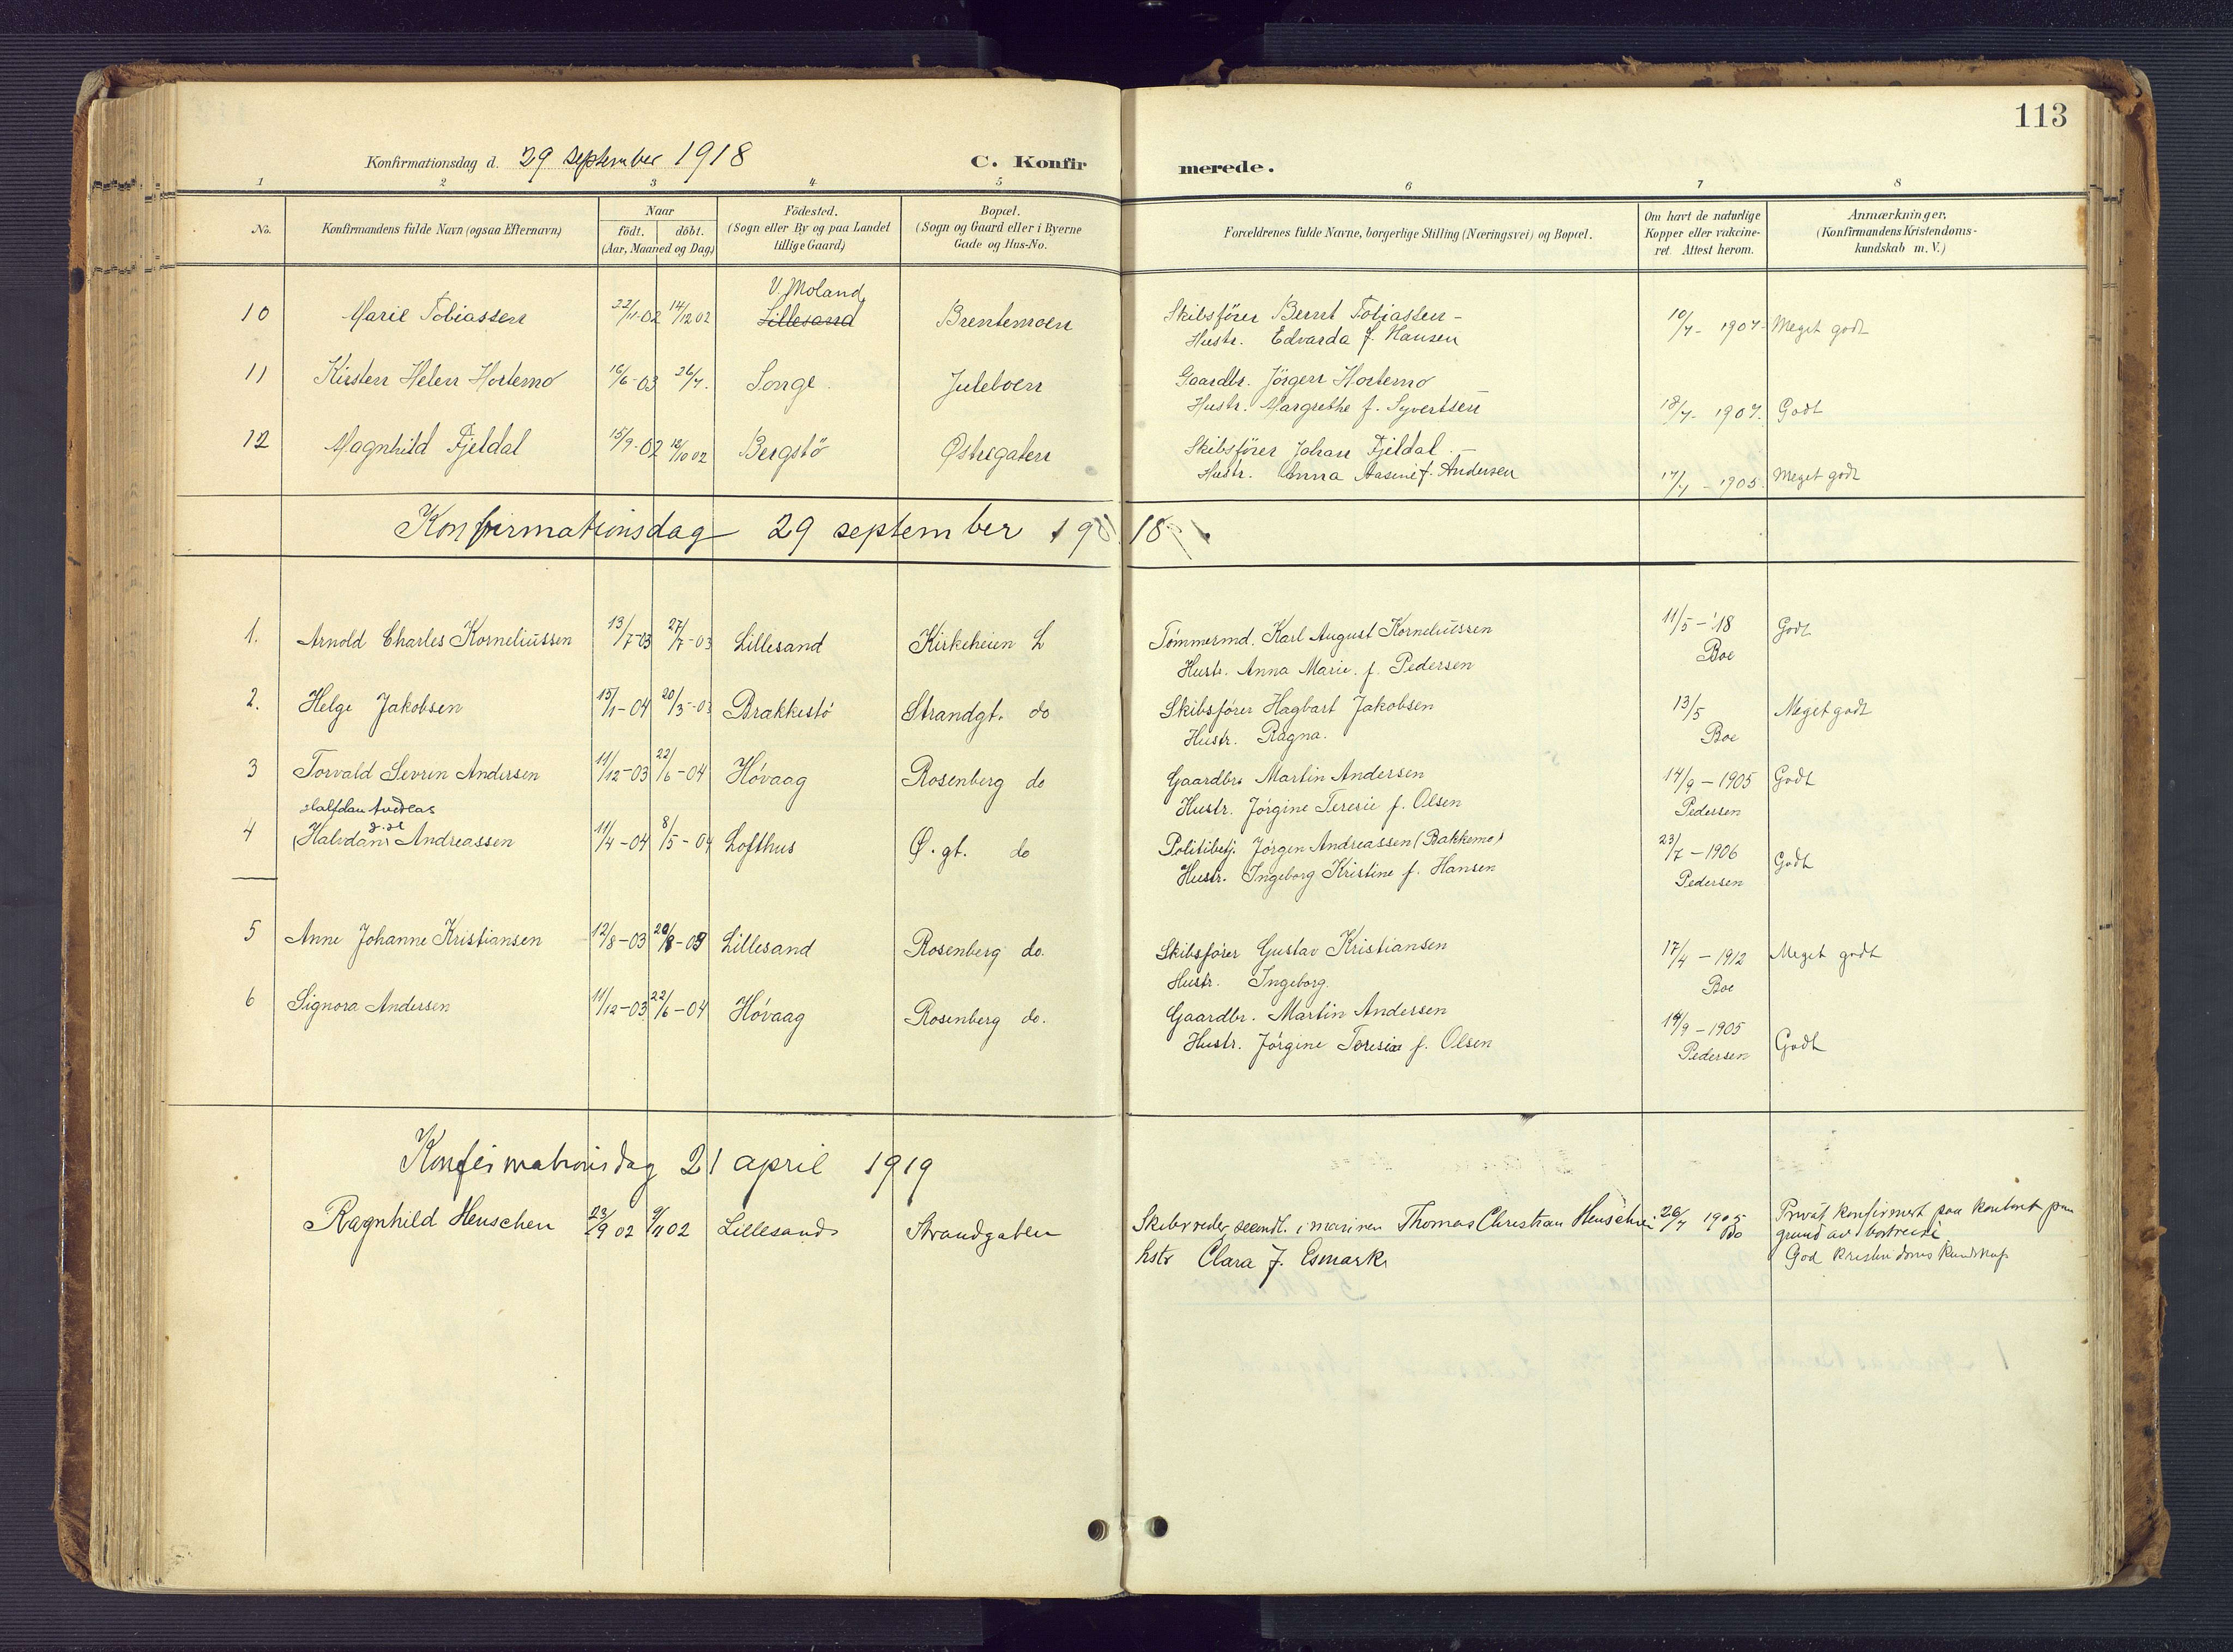 113
Konfirmationsdag d. 29 September 1918 C. Konfir merede.
1 2 3 4 5 6 7 8
No. Konfirmandens fulde Navn (ogsaa Efternavn) Naar födt. döbt. (Aar, Maaned og Dag) Födested. (Sogn eller By og paa Landet tillige Gaard) Bopæl. (Sogn og Gaard eller i Byerne Gade og Hus-No. Forældrenes fulde Navne, borgerlige Stilling (Næringsvei) og Bopæl. Om havt de naturlige Kopper eller vakcineret. Attest herom. Anmærkninger, (Konfirmandens Kristendomskundskab m. V.)
V. Moland
10 Marie Tobiassen 22/11-02 14/12 02 Lillesand Brentemoen Skibsfører Bernt Tobiassen - 10/7 - 1907 Meget godt
Hustr. Edvarda f. Hansen
11 Kirsten Helen Hortemo 16/6-03 26/7. Songe. Juleboen Gaardbr. Jörgen Hortemo
Hustr. Margrethe f. Syvertsen 18/7 - 1907. Godt
12 Magnhild Fjeldal 15/9-02 12/10 02 Bergstö Østregaten Skibsfører Johan Fjeldal. -
Hustr. Anna Aasine f. Andersen 17/7 - 1905. Meget godt
Konfirmationsdag 29 september 1918
1. Arnold Charles Korneliussen 13/7-03 27/7-03 Lillesand Kirkeheien L Tømmermd. Karl August Korneliussen 11/5-'18 Godt
Hustr. Anna Marie. f. Pedersen Boe
2. Helge Jakobsen 15/1-04 20/3-03 Brækkestö Strandgt. do Skibsfører Hagbart Jakobsen 13/5 Meget godt
Hustr. Ragna. Boe
3 Torvald Sevrin Andersen 11/12-03 22/6-04 Høvaag Rosenberg do Gaardbr. Martin Andersen 14/9-1905 Godt
Hustr. Jørgine Teresie f. Olsen Pedersen
Halfdan Andreas
4 (Halvdan) Andreassen 11/4-04 8/5-04 Lofthus Ø.gt. do Politibetj. Jørgen Andreassen (Bakkemo) 23/7-1906 Godt
Hustr. Ingeborg Kristine f. Hansen Pedersen
5 Anne Johanne Kristiansen 12/8-03 20/8-03 Lillesand Rosenberg do. Skibsfører Gustav Kristiansen 17/4-1912 Meget godt
Hustr. Ingeborg. Boe
6 Signora Andersen 11/12-03 22/6-04 Høvaag Rosenberg do. Gaardbr. Martin Andersen 14/9-1905 Godt
Hustr. Jørgine Teresia f. Olsen Pedersen
Konfirmationsdag 21 april 1919
Ragnhild Henschen 23/9 02 9/11 02 Lillesand Strandgaten Skibsreder, seendl. i marinen Thomas Christian Henschen 26/7 1905 Privat konfirmert paa kontoret paa
hstr Clara f. Esmark Bo grund av bortreise
God kristendoms kundskap